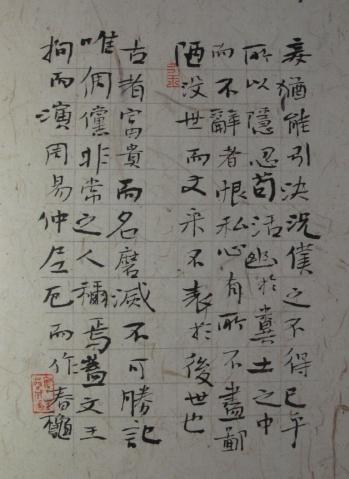 妾猶能引決況僕之不得已乎
所以隱忍苟活幽於糞土之中
而不辭者恨私心有所不盡鄙
陋没世而文采不表於後世也
古者富貴而名磨滅不可勝記
唯倜儻非常之人稱焉蓋文王
拘而演周易仲尼厄而作春龝